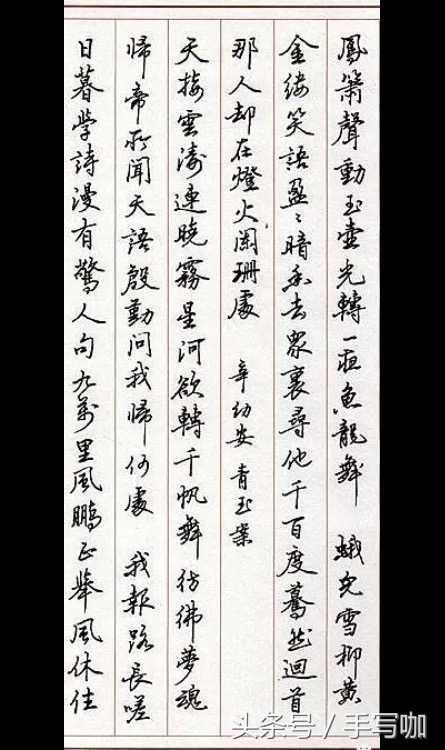 鳳簫聲動玉壺光轉一夜魚龍舞 蛾兒雪柳黃
金縷笑語盈〻暗香去眾裏尋他千百度驀然迴首
那人却在燈火闌珊處 辛幼安 青玉案
天接雲濤連曉霧星河欲轉千帆舞 彷彿夢魂
歸帝所聞天語殷勤問我歸何處 我報路長嗟
日暮學詩漫有驚人句九萬里風鵬正舉風休住
头条号 / 手写咖